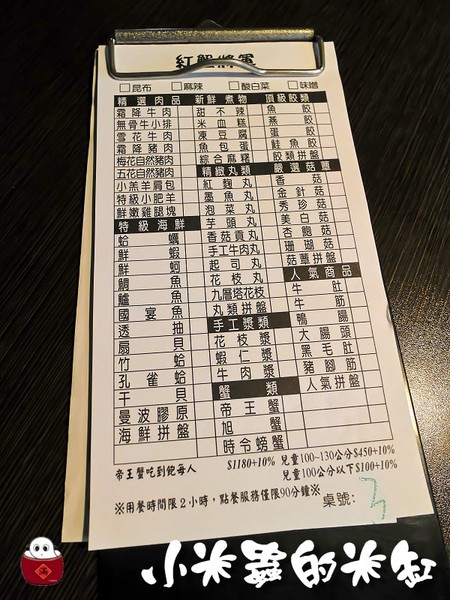 紅蟹將軍
□昆布 □麻辣 □酸白菜 □味噌
精選肉品 新鮮煮物 頂級餃類
霜降牛肉 甜不辣 魚餃
無骨牛小排 米血糕 燕餃
雪花牛肉 凍豆腐 蛋餃
霜降豬肉 魚包蛋 鮭魚餃
梅花自然豬肉 綜合麻糬 餃類拼盤
五花自然豬肉 精緻丸類 嚴選菇蕈
小羔羊肩包 紅麴丸 香菇
特級小肥羊 墨魚丸 金針菇
鮮嫩雞腿塊 泡菜丸 秀珍菇
特級海鮮 芋頭丸 美白菇
蛤蠣 香菇貢丸 杏鮑菇
鮮蝦 手工牛肉丸 珊瑚菇
鮮蚵 起司丸 菇蕈拼盤
鯛魚 花枝丸 人氣商品
鱸魚 九層塔花枝 牛肚
國宴魚 丸類拼盤 牛筋
透抽 手工漿類 鴨腸
扇貝 花枝漿 大腸頭
竹蛤 蝦仁漿 黑毛肚
孔雀蛤 牛肉漿 豬腳筋
干貝 蟹類 人氣拼盤
曼波膠原 帝王蟹
海鮮拼盤 旭蟹
時令螃蟹
帝王蟹吃到飽每人 $1180+10% 兒童100~130公分$450+10%
兒童100公分以下$100+10%
※用餐時間限2小時，點餐服務僅限90分鐘※ 桌號：3
小米蟲的米缸